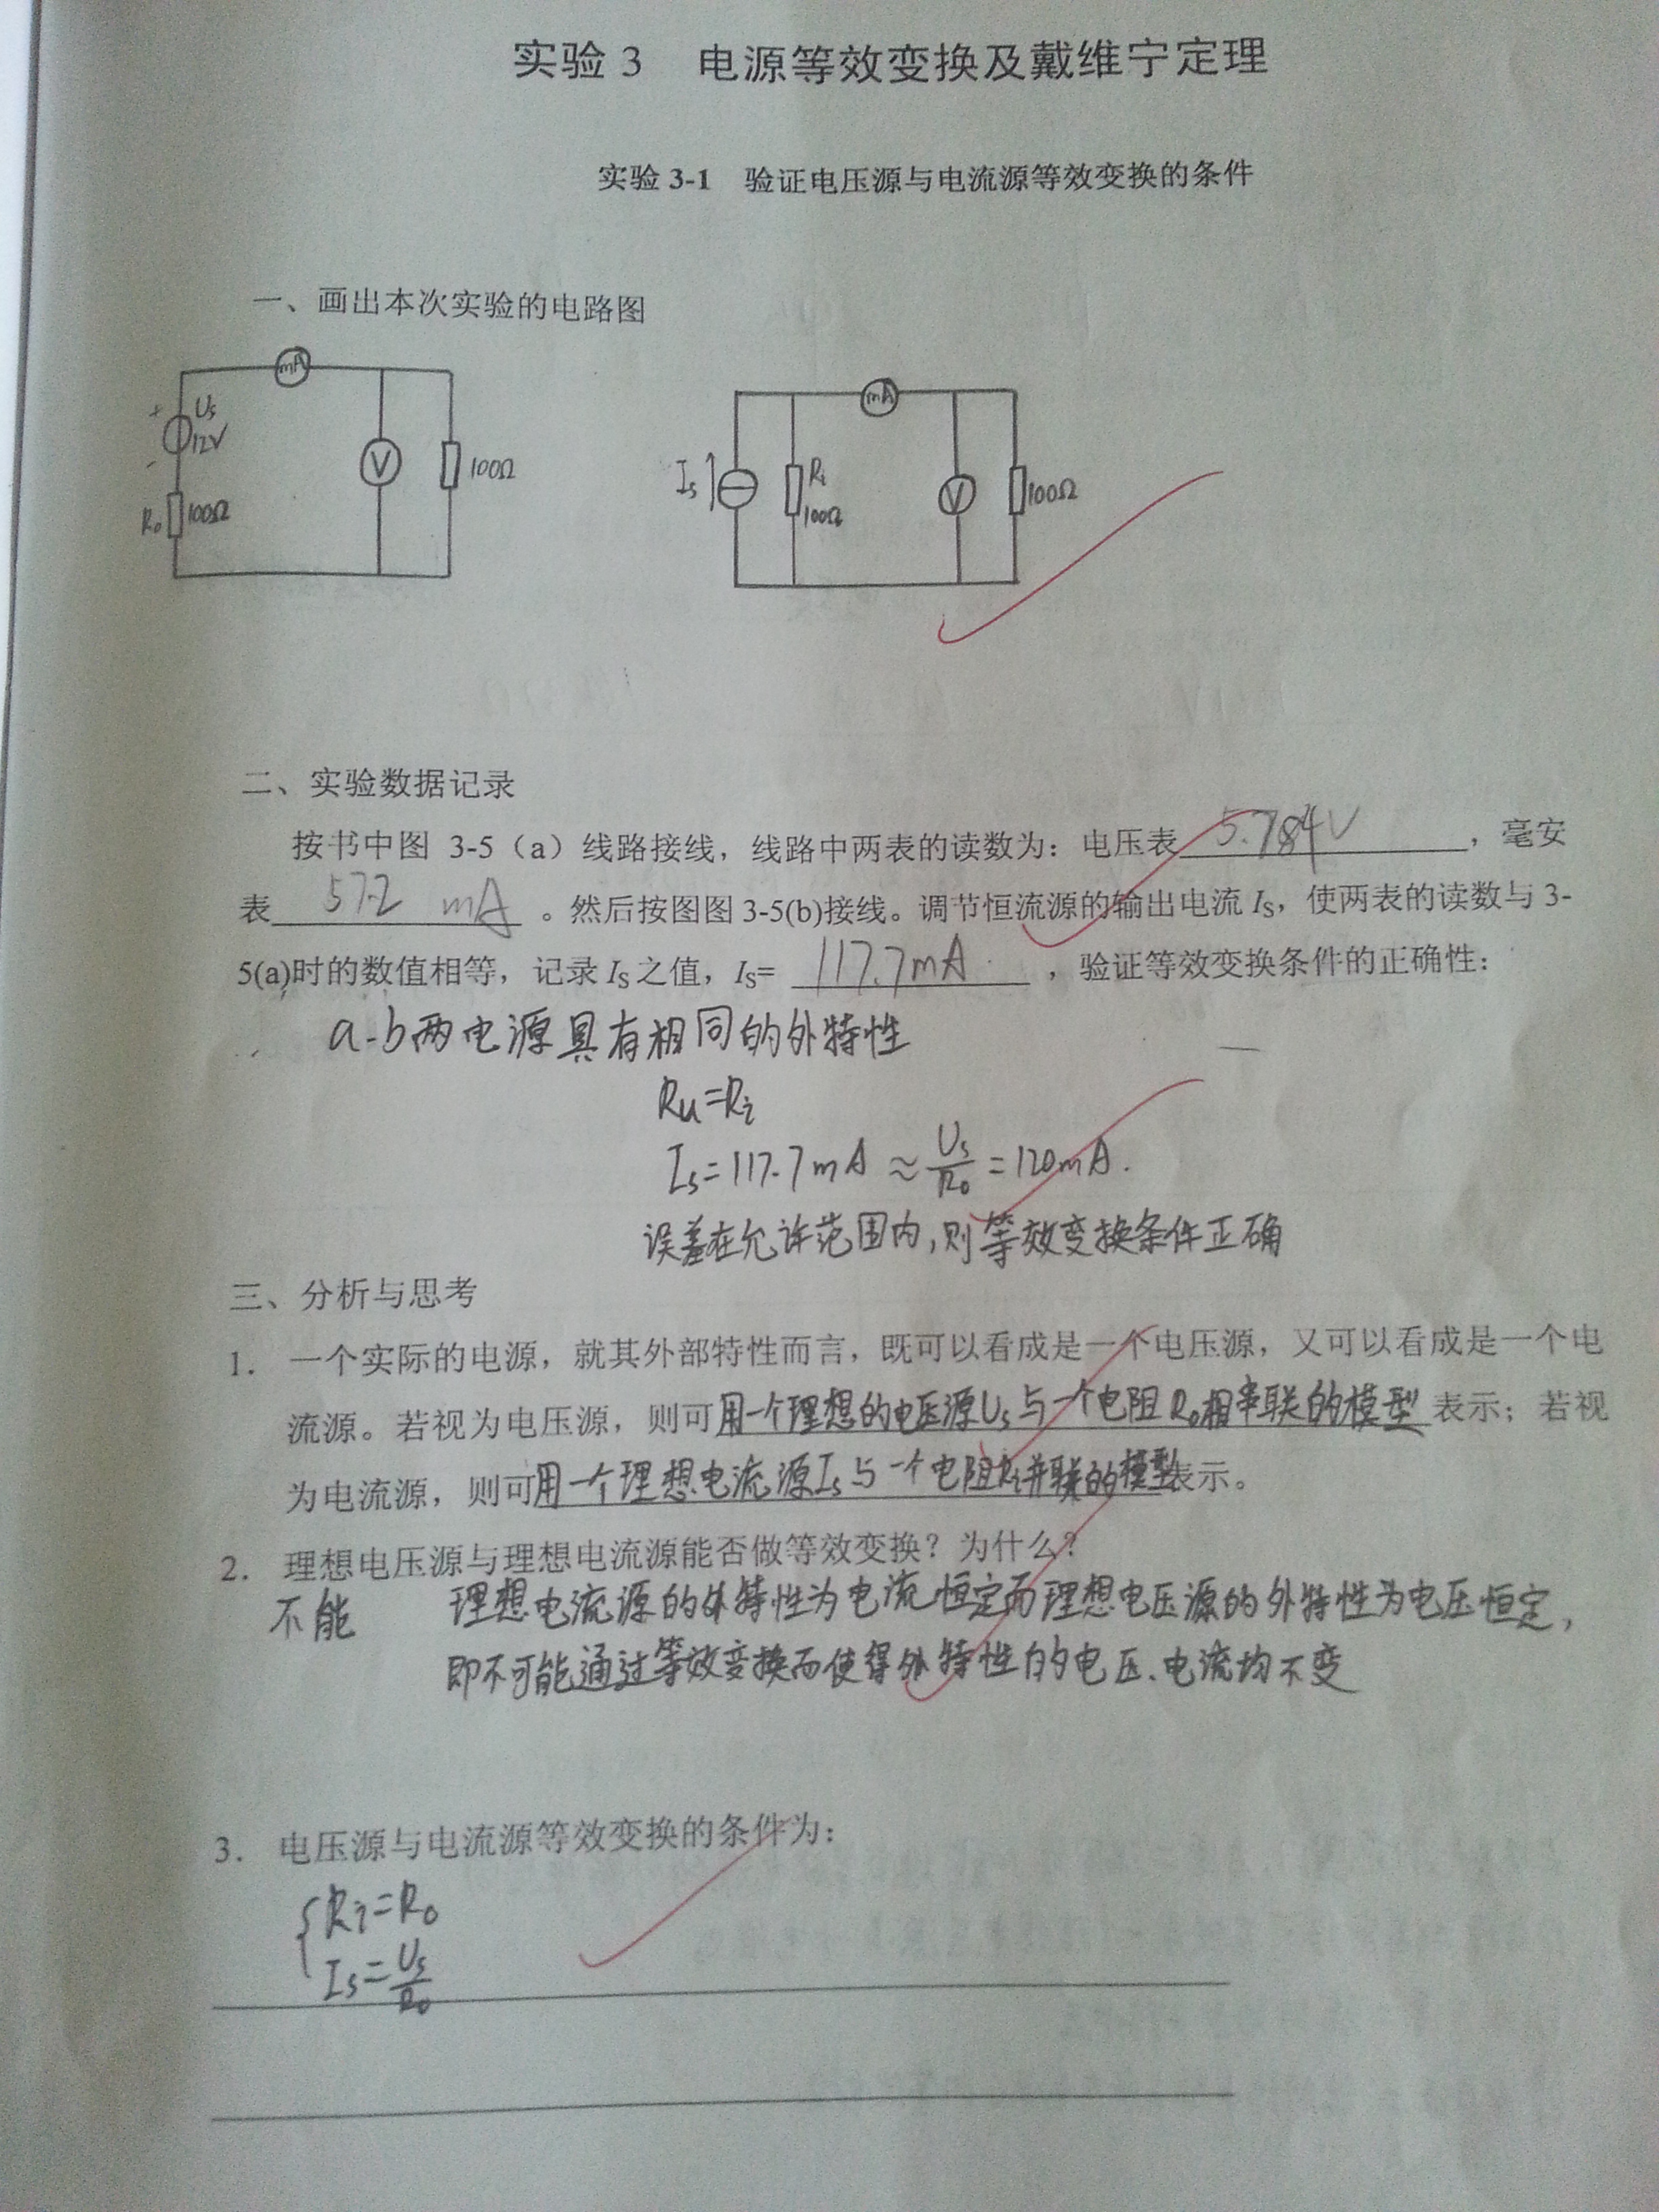 实验 3 电源等效变换及戴维宁定理
实验 3-1 验证电压源与电流源等效变换的条件
一、画出本次实验的电路图
mA
+ Us
12V
-
R₀ 100Ω
V
100Ω
mA
Is
Ri
100Ω
V
100Ω
二、实验数据记录
按书中图 3-5（a）线路接线，线路中两表的读数为：电压表 5.784V ，毫安
表 57.2 mA 。然后按图图 3-5(b)接线。调节恒流源的输出电流 IS，使两表的读数与 3-
5(a)时的数值相等，记录 IS 之值，IS= 117.7mA ，验证等效变换条件的正确性：
a-b两电源具有相同的外特性
Ru=Ri
Is=117.7mA≈Us/R₀=120mA.
误差在允许范围内,则等效变换条件正确
三、分析与思考
1. 一个实际的电源，就其外部特性而言，既可以看成是一个电压源，又可以看成是一个电
流源。若视为电压源，则可用一个理想的电压源Us与一个电阻R₀相串联的模型表示；若视
为电流源，则可用一个理想电流源Is与一个电阻Ri并联的模型表示。
2. 理想电压源与理想电流源能否做等效变换？为什么？
不能 理想电流源的外特性为电流恒定而理想电压源的外特性为电压恒定,
即不可能通过等效变换而使得外特性的电压、电流均不变
3. 电压源与电流源等效变换的条件为：
{Ri=R₀
Is=Us/R₀